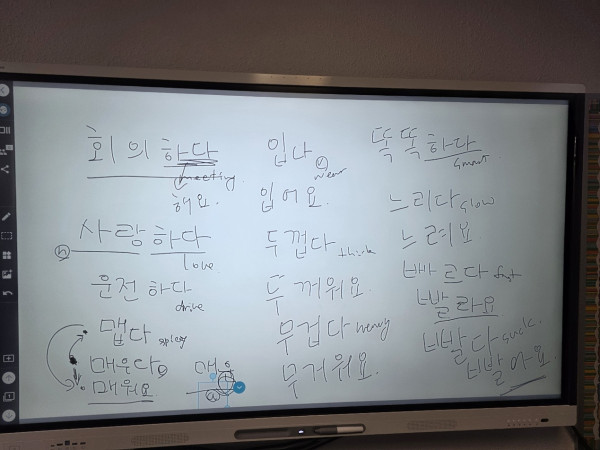 회의하다
meeting
해요.
사랑하다
ⓝ love
운전하다
drive
맵다 spicy
매우다
매워요
매
입나
ⓥ wear
입어요.
두껍다 think
두꺼워요.
무겁다 heavy
무거워요.
똑똑하다
smart
느리다 slow
느려요
빠르다 fast
빨라요
빨다 suck.
빨아요